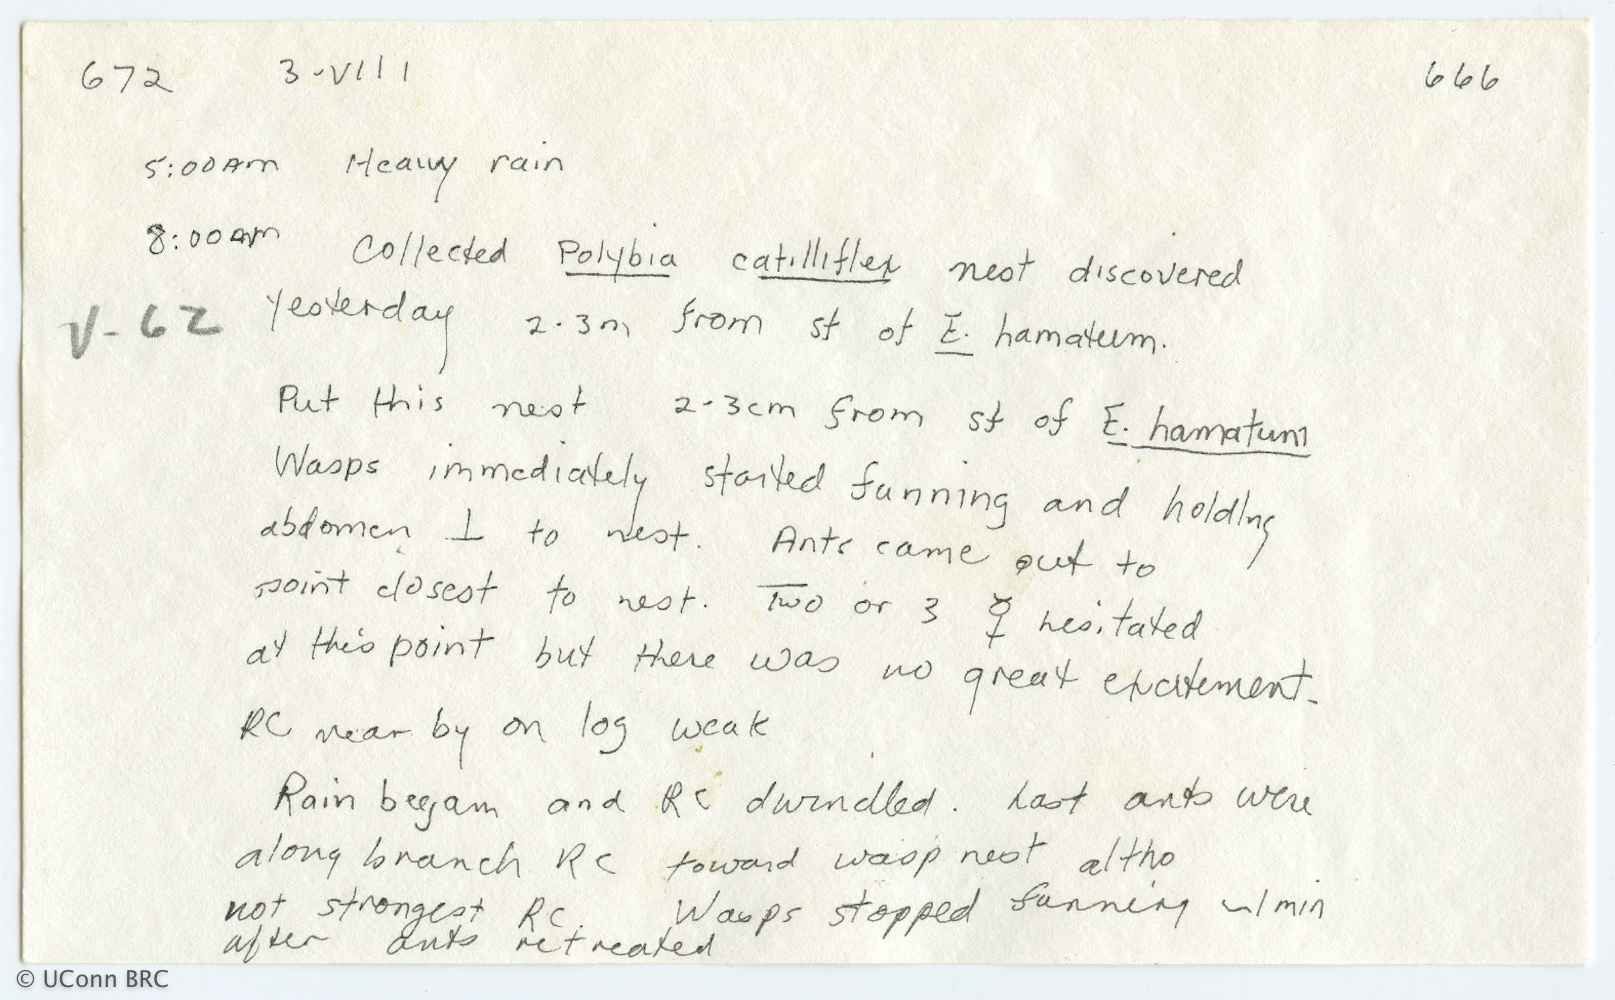 672 3-VIII 666
5:00AM Heavy rain
8:00AM Collected Polybia catilliflex nest discovered
V-62 yesterday 2-3m from st of E. hamatum.
Put this nest 2-3cm from st of E. hamatum
Wasps immediately started fanning and holding
abdomen ⊥ to nest. Ants came out to
point closest to nest. Two or 3 ☿ hesitated
at this point but there was no great excitement.
RC near by on log weak
Rain began and RC dwindled. Last ants were
along branch RC toward wasp nest altho
not strongest RC. Wasps stopped fanning w/min
after ants retreated
© UConn BRC